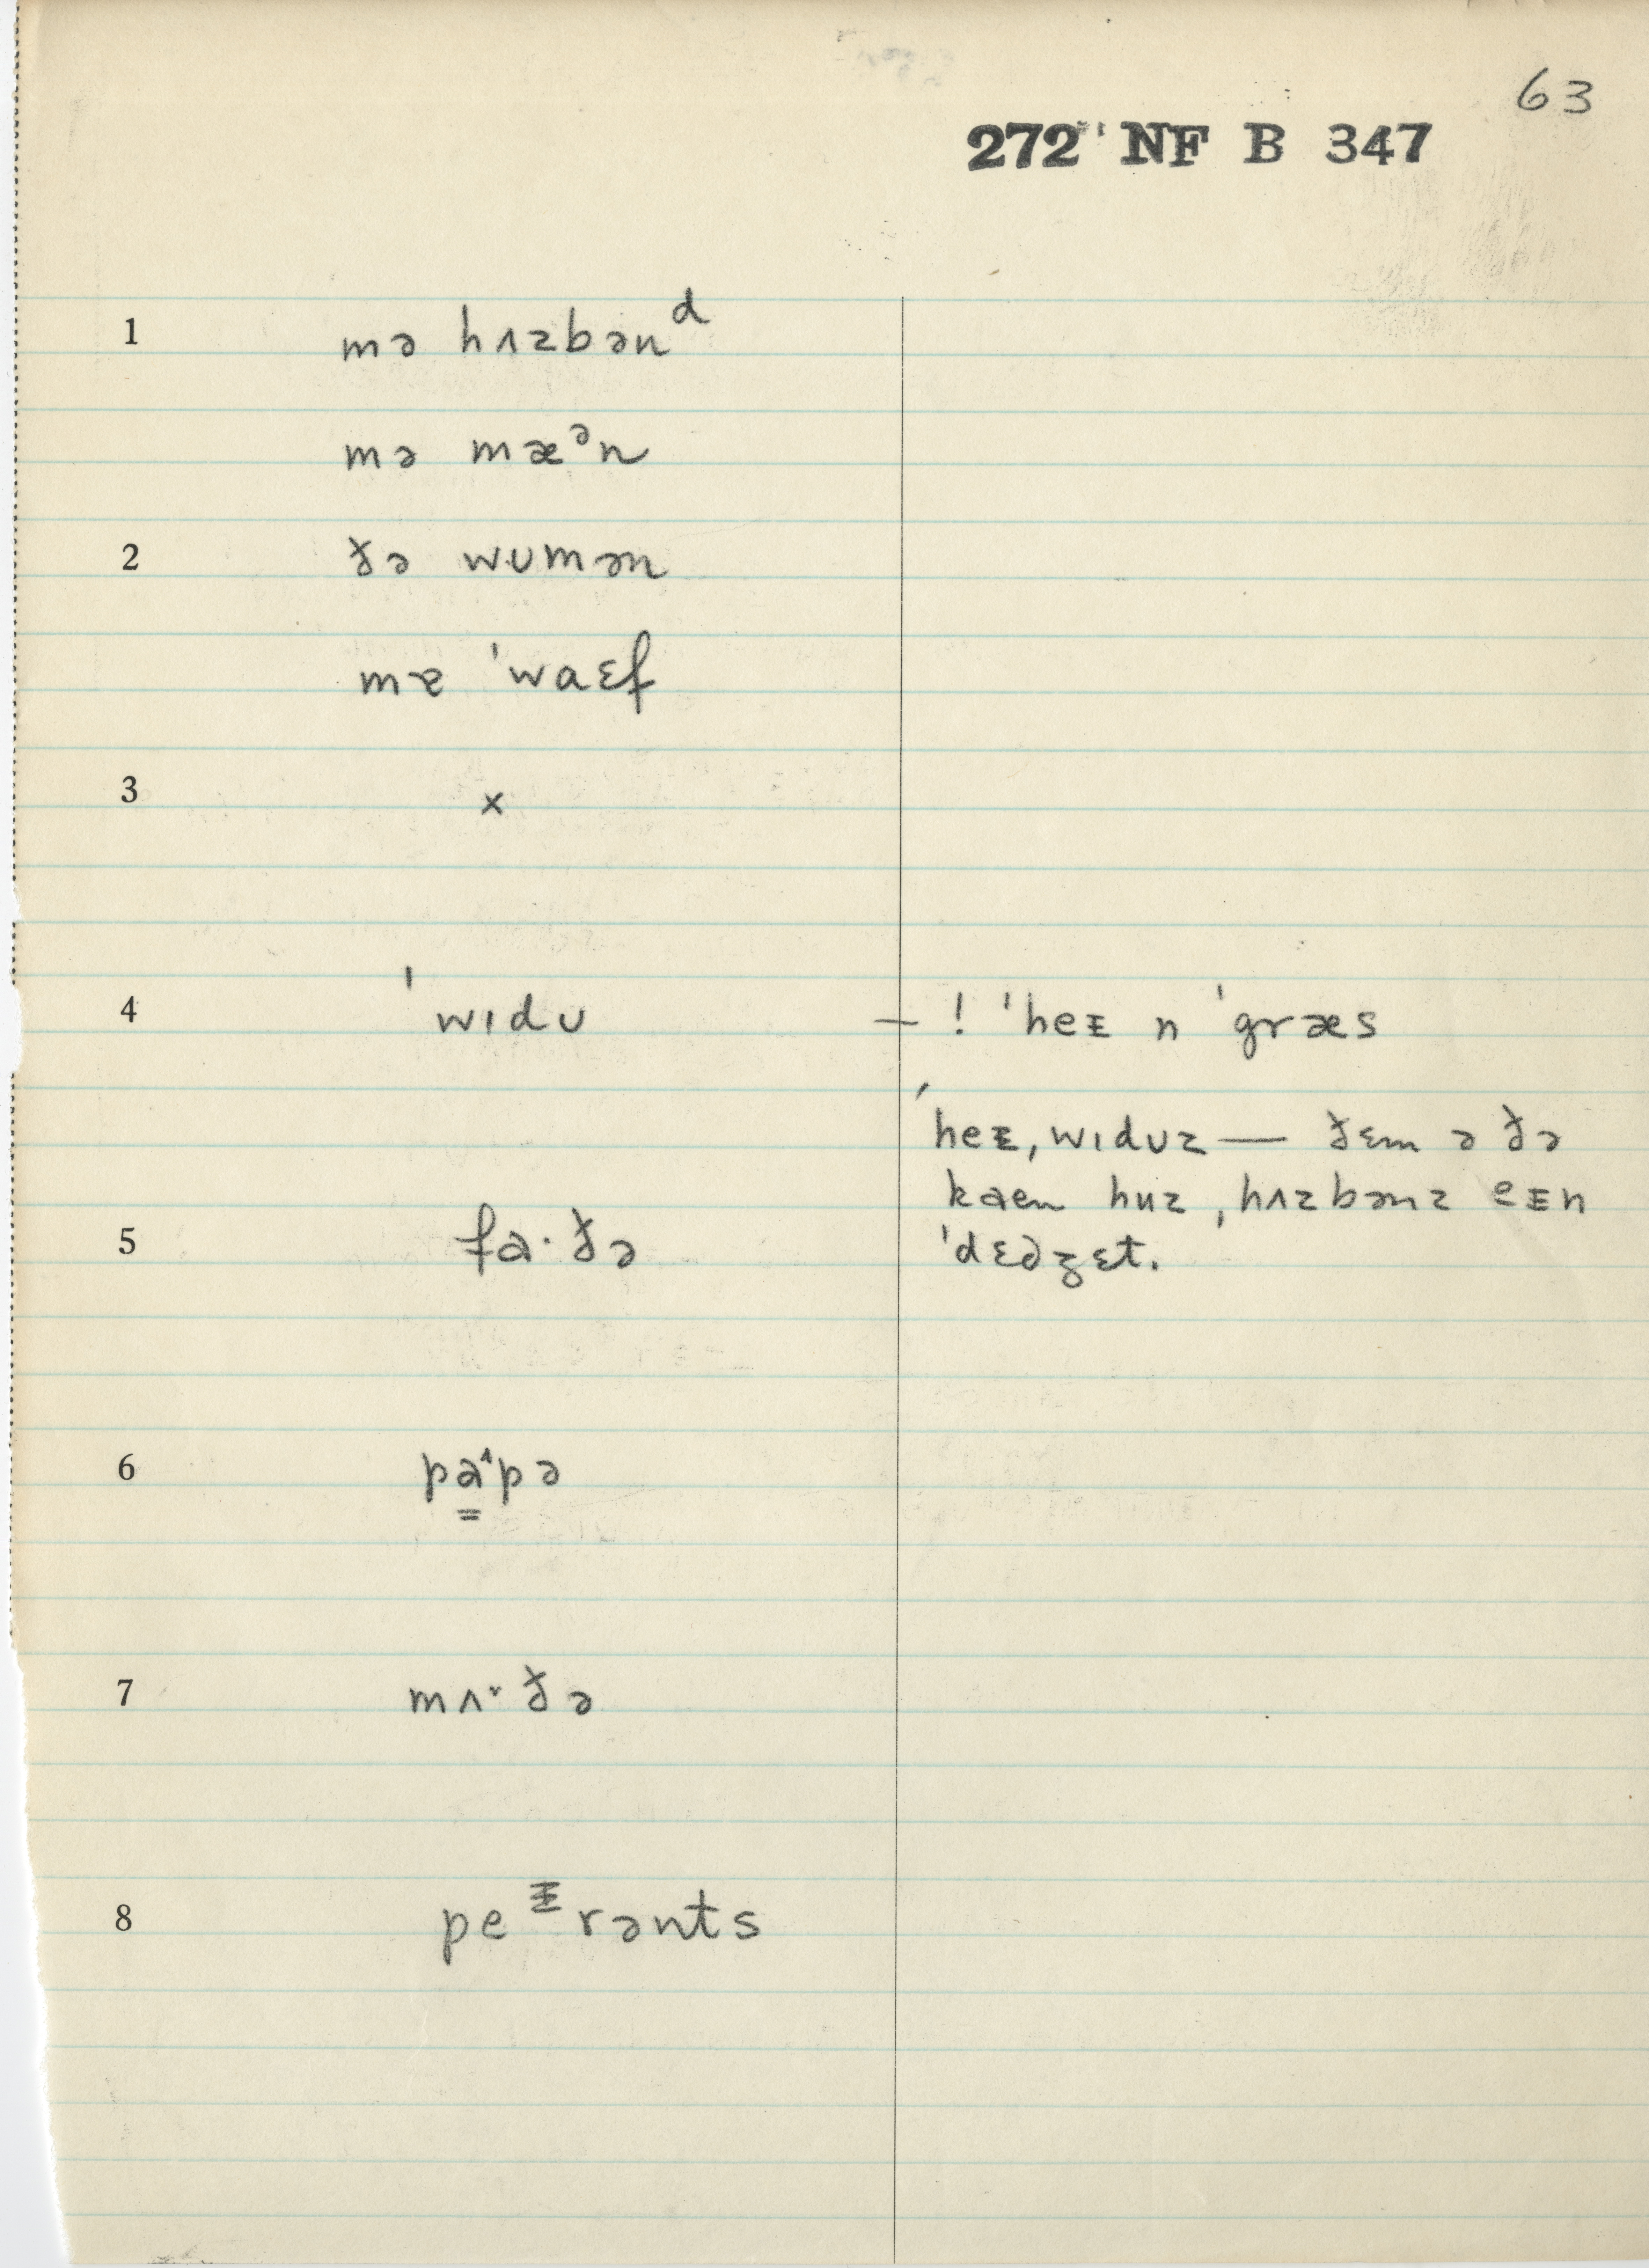 63
272 NF B 347
1 mə hʌzbənᵈ
mə mæᵊn
2 ðə wʊmən
mɐ ˈwaɛf
3 ×
4 ˈwɪdʊ – ! ˈheᵻ n ˈgræs
ˈheᵻ, wɪdʊz — ðɛm ə ðə
kaen huz ˌhʌzbənz eᵻn
5 fɑ·ðə ˈdɛdʒɛt.
6 pɑ˄pə
7 mʌ˅ðə
8 peᵻrənts